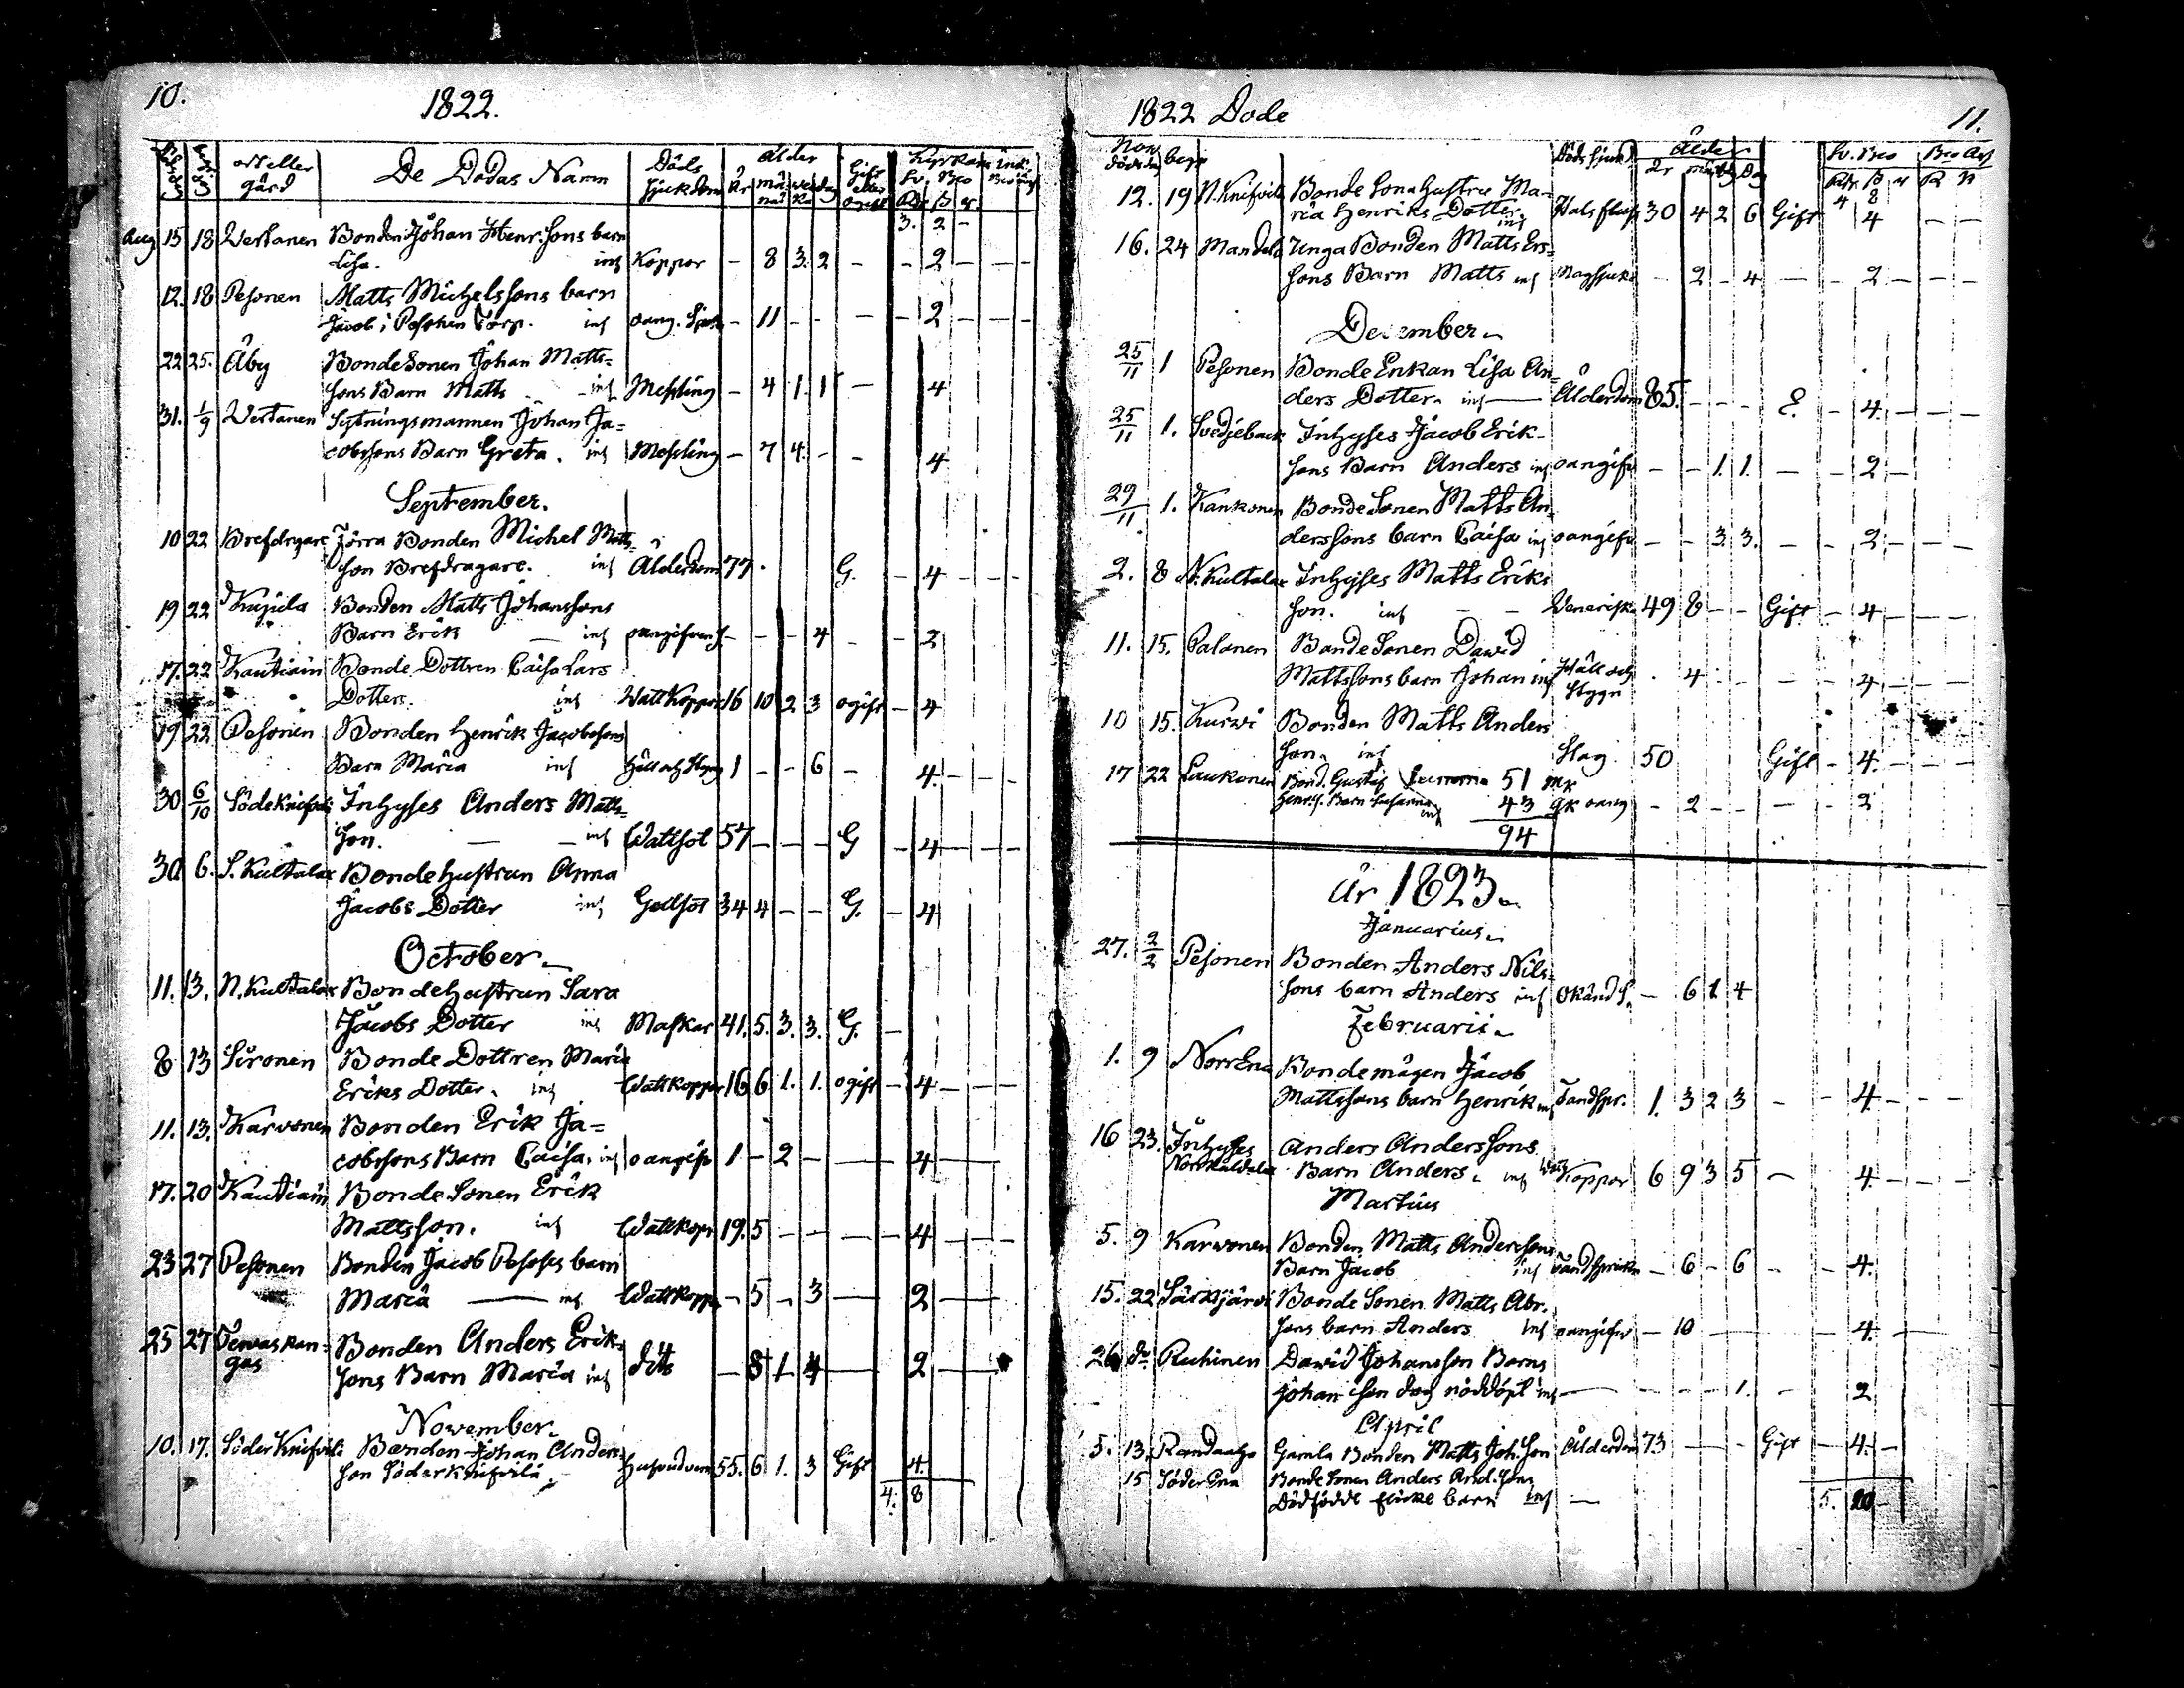 10.
1822.
ort eller gård De Dödas Namn Döds Sjukdom Ålder Gift eller ogift Kyrkan
år må nar wec ka dag
3. 2 -
Aug 15 18 Wertanen Bonden Johan Henr. Sons barn
Lisa. ins Koppor - 8 3. 2 - - 2 - - -
12. 18 Pesonen Matts Michelssons barn
Jacob i Posonen Torp. ins oang. Sjuk - 11 - - - - 2 - - -
22 25. Åby BondeSonen Johan Matts=
sons Barn Matts - ins Messling - 4 1. 1 - 4
31. 1/9 Wertanen Sytningsmannen Johan Ja=
cobssons Barn Greta. ins Messling - 7 4. - - 4
September.
10 22 Brefdragare Förra Bonden Michel Matts-
son Brefdragare. ins Ålderdom 77. G. - 4 - - -
19 22 Kujula Bonden Matts Johanssons
Barn Erik - ins oangifven S. - - - 4 - - 2
17. 22 Kautiain Bonde Dottren Caisa Lars
Dotter. ins WattKoppor 16 10 2 3 ogift - 4
19 22 Pesonen Bonden Henrik Jacobssons
Barn Maria ins Håll och Styng 1 - - 6 - 4. - - -
30 6/10 Söde Knifvilä Inhyses Anders Matts-
son. - - ins Wattsot 57 - - - G - 4 - - -
30 6. S. Kultalax Bondehustrun Anna
Jacobs Dotter ins Gallsot 34 4 - - G. - 4
October.
11. 13. N. Kultalax Bondehustrun Sara
Jacobs Dotter ins Maskar 41. 5. 3. 3. G. -
8 13 Sironen Bonde Dottren Maria
Eriks Dotter. ins Wattkoppor 16 6 1. 1. ogift - 4 - - -
11. 13. Karvonen Bonden Erik Ja=
cobssons Barn Caisa. ins oangifv 1 - 2 - - 4 -
17. 20 Kautiain Bonde Sonen Erik
Mattsson. ins Wattkopr 19. 5 - - - - 4 - - -
23 27 Pesonen Bonden Jacob Pososes barn
Maria - ins Wattkoppr - 5 - 3 - 2 -
25 27 Terwaskan=
gas Bonden Anders Erik-
sons Barn Maria ins dito - 8 1. 4 - 2 -
November.
10. 17. Söder Knifvil: Bonden Johan Anders-
son Söderknifvilä. Hufvudverk 55. 6 1. 3 Gift 4.
4. 8
1822 Dode 11.
Now
döds begr Döds sjukd Ålder Sv. Bco Bco Ass
år mån dag
4 8
12. 19 N. Knifvilä Bonde Sonahustru Ma-
ria Henriks Dotter. ins Halsfluss 30 4 2 6 Gift 4 - -
16. 24 Mandela Unga Bonden Matts Ers=
sons Barn Matts ins Magsjuka - 2 - 4 - - 2 - - -
December.
25/11 1 Pesonen BondeEnkan Lisa An-
ders Dotter. ins - Ålderdom 85. - - - E. - 4. - - -
25/11 1. Svedjeback Inhyses Jacob Erik-
sons Barn Anders ins oangifv - - 1. 1. - - 2 -
29/11 1. Kankonen BondeSonen Matts An-
derssons barn Caisa ins oangifv - - 3. 3. - - 2 - - -
2. 8 N. Kultalax Inhyses Matts Eriks
son. ins - - Venerisk 49 8 - - Gift - 4 - - -
11. 15. Palonen BondeSonen Dawid
Mattssons barn Johan ins Håll och
Stygn - 4 - - - - 4 - - -
10 15. Kurvi Bonden Matts Anders
son. ins Slag 50 Gift - 4. - - -
17 22 Laukonen Bond. Gustaf Summa 51 mk
Henr. S. Barn Susanna ins 43 qk oang - 2 - - - - 2
94
År 1823.
Januarius.
27. 2/2 Pesonen Bonden Anders Nils-
sons barn Anders ins Okänd S. - 6 1. 4
Februarii.
1. 9 NorrEna Bondemågen Jacob
Mattssons barn Henrik ins Tandspr. 1. 3 2 3 - - 4. - - -
16 23. Inhyses
Norrkultala Anders Anderssons
Barn Anders. ins Watt Koppor 6 9 3 5 - 4. - - -
Martius
5. 9 Karwonen Bonden Matts Anderssons
Barn Jacob ins Tandsprickn - 6 - 6 - - 4.
15. 22 Särkijärvi Bonde Sonen Matts Abr.
sons barn Anders ins oangifv - 10 - - 4. -
26 do Ruhinen Dawid Johansson Barns
Johan sen dag nöddöpt ins - - - - 1. - 2
April
5. 13. Randaaho Gamla Bonden Matts Joh. Son Ålderdom 73 - - Gift - 4. -
15 Söder Ena Bonde Sonen Anders And. Sons
Dödfödde flicke barn ins -
5. 20 -